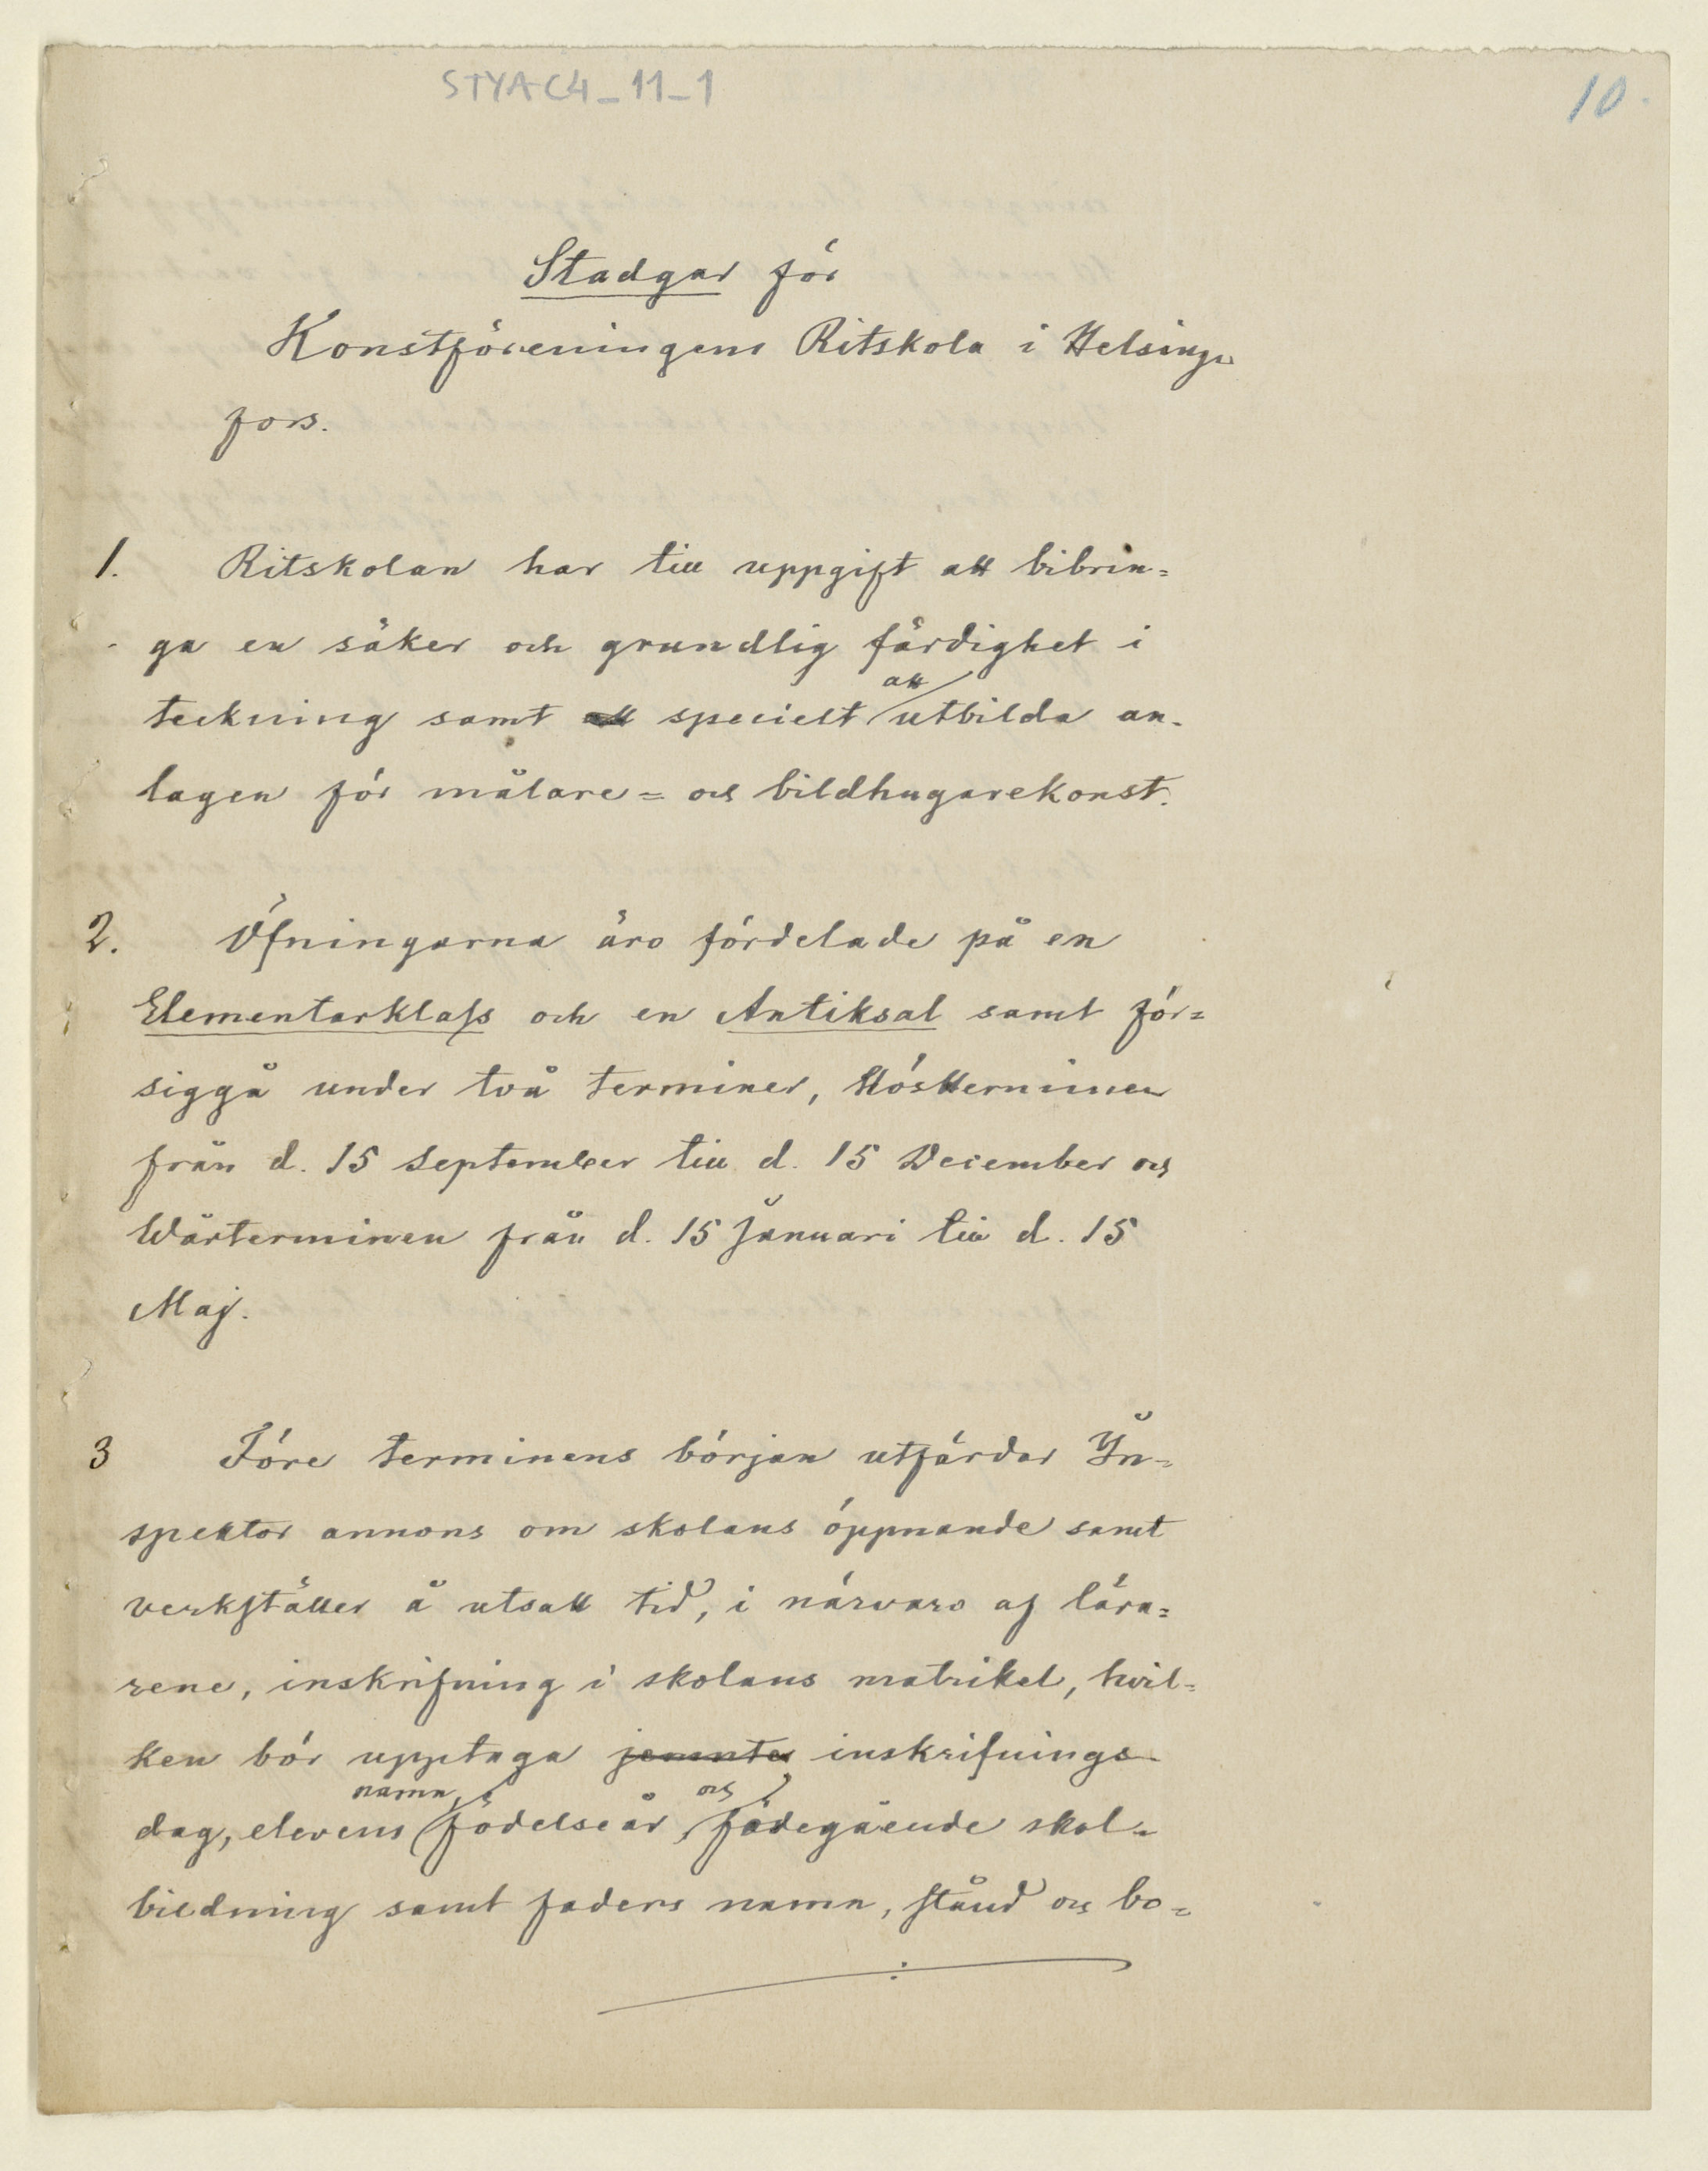 STYAC4_11_1
10.
Stadgar för
Konstföreningens Ritskola i Helsing-
fors.
1. Ritskolan har till uppgift att bibrin=
ga en säker och grundlig färdighet i
att
teckning samt att specielt utbilda an-
lagen för målare= och bildhugarekonst.
2. Öfningarna äro fördelade på en
Elementarklass och en Antiksal samt för=
siggå under två terminer, Höstterminen
från d. 15 September till d. 15 December och
Wårterminen från d. 15 Januari till d. 15
Maj.
3 Före terminens början utfärdar In=
spektor annons om skolans öppnande samt
verkställer å utsatt tid, i närvaro af lära=
rene, inskrifning i skolans matrikel, hvil=
ken bör upptaga jemnte inskrifnings-
namn, och
dag, elevens födelseår, föregående skol=
bildning samt faders namn, stånd och bo=